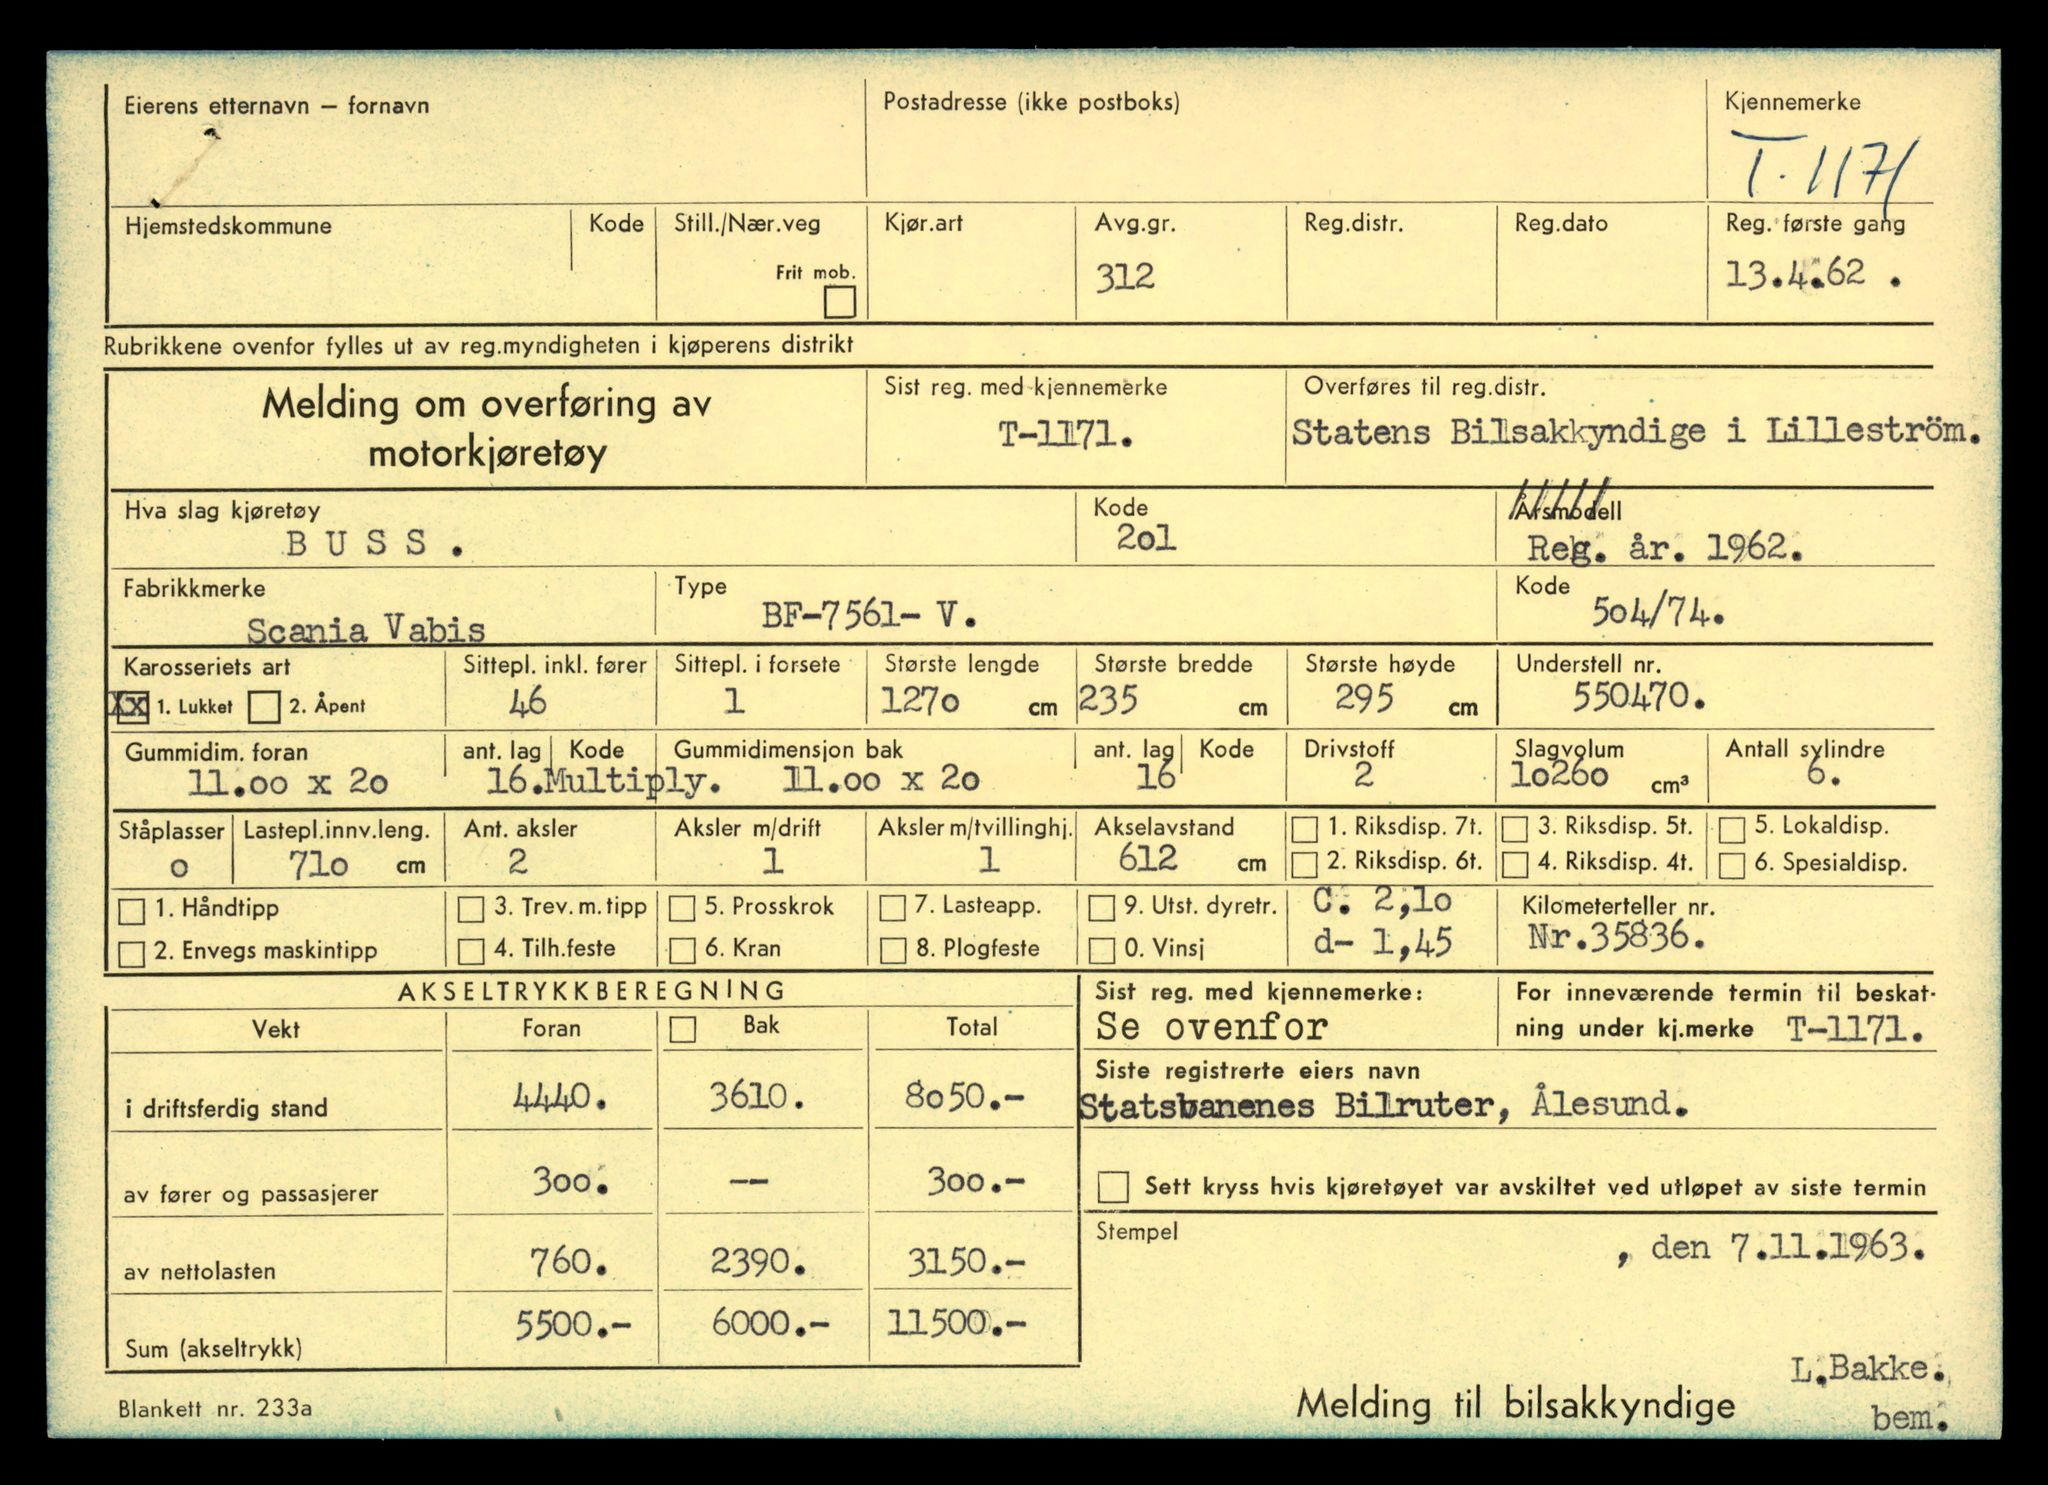 Eierens etternavn – fornavn
Postadresse (ikke postboks)
Kjennemerke
T. 1171
Hjemstedskommune
Kode
Still./Nær.veg
Frit mob.
Kjør.art
Avg.gr.
312
Reg.distr.
Reg.dato
Reg. første gang
13.4.62 .
Rubrikkene ovenfor fylles ut av reg.myndigheten i kjøperens distrikt
Melding om overføring av
motorkjøretøy
Sist reg. med kjennemerke
T-1171.
Overføres til reg.distr.
Statens Bilsakkyndige i Lilleström.
Hva slag kjøretøy
B U S S .
Kode
201
Årsmodell
Reg. år. 1962.
Fabrikkmerke
Scania Vabis
Type
BF-7561- V.
Kode
504/74.
Karosseriets art
Xx 1. Lukket 2. Åpent
Sittepl. inkl. fører
46
Sittepl. i forsete
1
Største lengde
1270 cm
Største bredde
235 cm
Største høyde
295 cm
Understell nr.
550470.
Gummidim. foran
11.00 x 20
ant. lag
Kode
16.Multiply.
Gummidimensjon bak
11.00 x 20
ant. lag
16
Kode
Drivstoff
2
Slagvolum
10260 cm³
Antall sylindre
6.
Ståplasser
0
Lastepl.innv.leng.
710 cm
Ant. aksler
2
Aksler m/drift
1
Aksler m/tvillinghj.
1
Akselavstand
612 cm
1. Riksdisp. 7t.
3. Riksdisp. 5t.
5. Lokaldisp.
2. Riksdisp. 6t.
4. Riksdisp. 4t.
6. Spesialdisp.
1. Håndtipp
3. Trev. m. tipp
5. Prosskrok
7. Lasteapp.
9. Utst. dyretr.
2. Envegs maskintipp
4. Tilh.feste
6. Kran
8. Plogfeste
0. Vinsj
C. 2,10
d- 1,45
Kilometerteller nr.
Nr.35836.
AKSELTRYKKBEREGNING
Vekt Foran Bak Total
i driftsferdig stand 4440. 3610. 8050.-
av fører og passasjerer 300. -- 300.-
av nettolasten 760. 2390. 3150.-
Sum (akseltrykk) 5500.- 6000.- 11500.-
Sist reg. med kjennemerke:
Se ovenfor
For inneværende termin til beskat-
ning under kj.merke T-1171.
Siste registrerte eiers navn
Statsbanenes Bilruter, Ålesund.
Sett kryss hvis kjøretøyet var avskiltet ved utløpet av siste termin
Stempel
, den 7.11.1963.
L.Bakke.
bem.
Blankett nr. 233a
Melding til bilsakkyndige